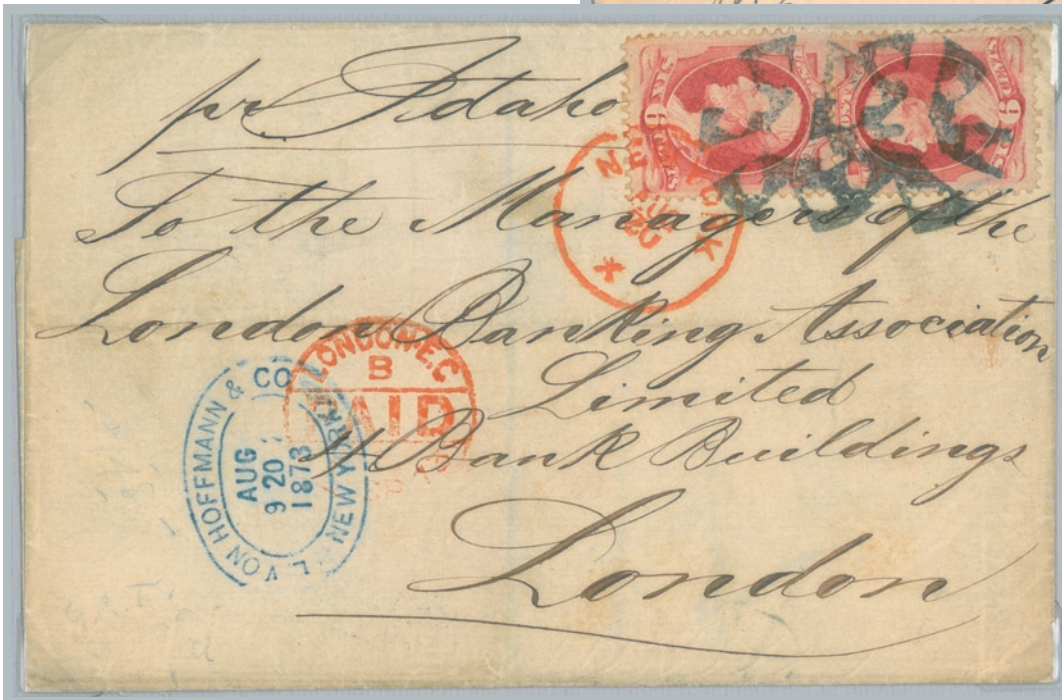 pr Idaho
To the Managers of the
London Banking Association
Limited
4 Bank Buildings
London
NEW YORK
AUG
20
LONDON E.C
B
PAID
L. VON HOFFMANN & CO
NEW YORK
AUG
9 20
1873
6 CENTS
6 CENTS